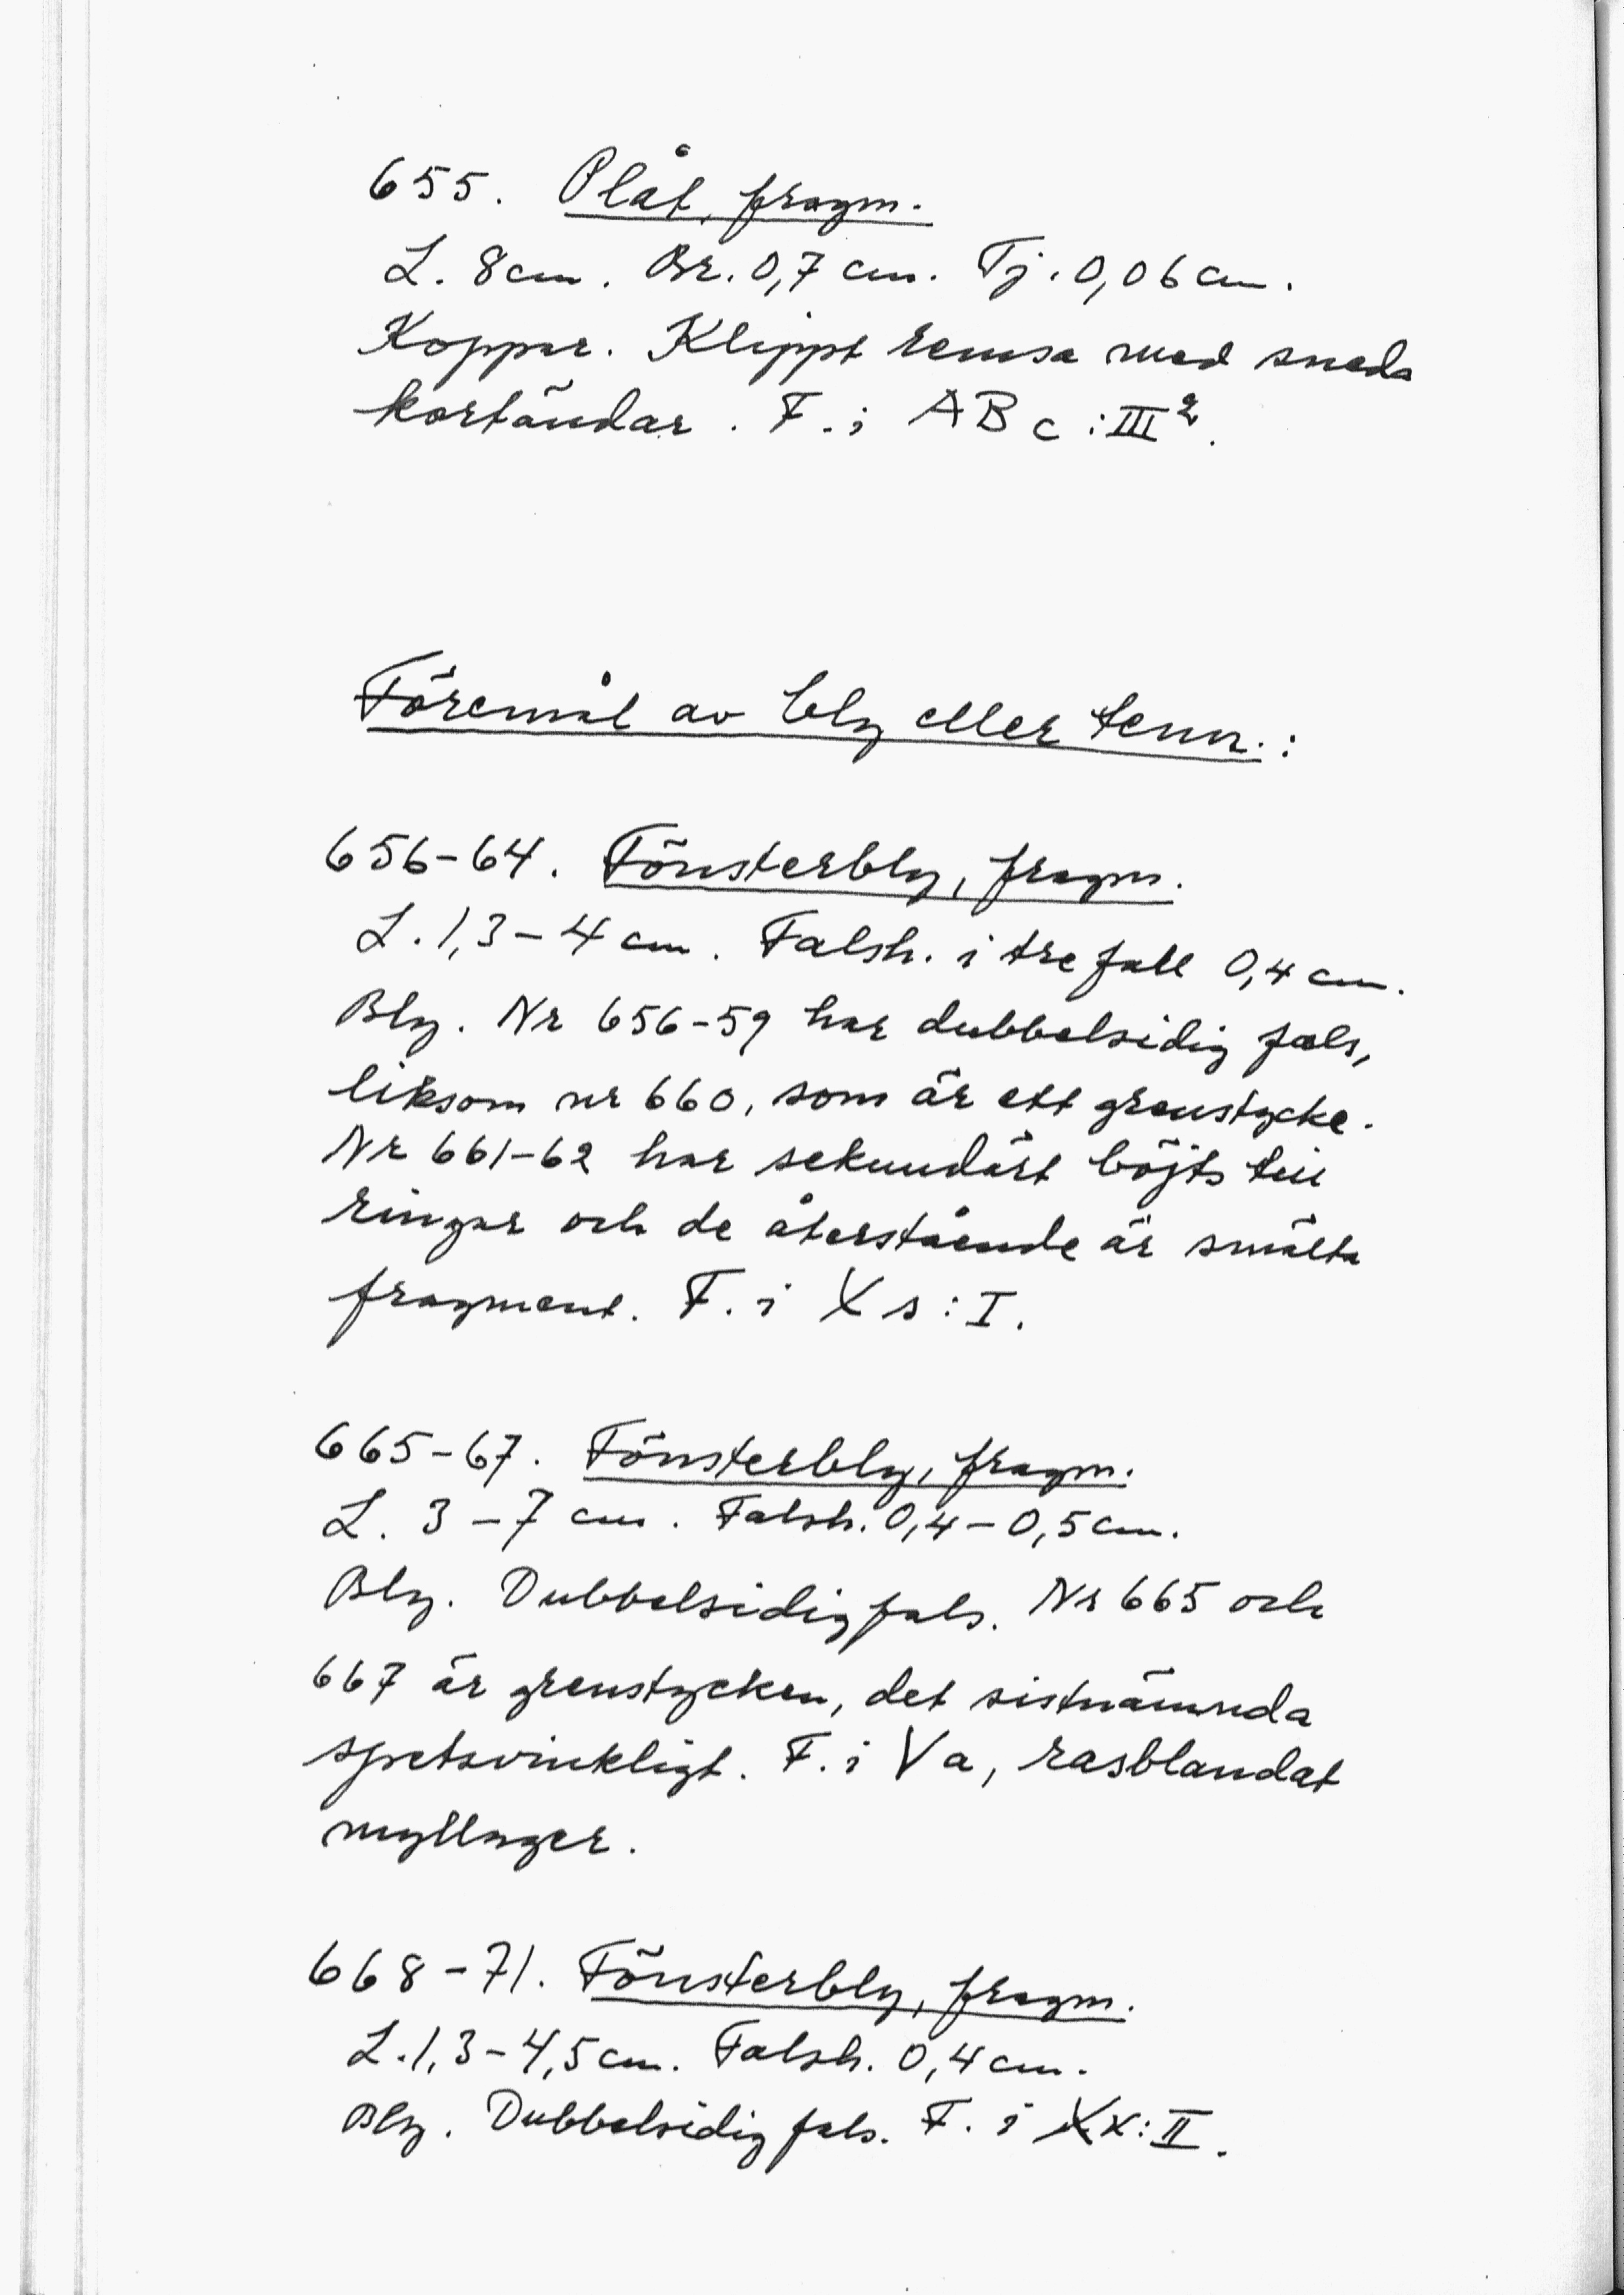 655. Plåt, fragm.
L. 8 cm. Br. 0,7 cm. Tj. 0,06 cm.
Koppar. Klippt remsa med sneda
kortändar. F. i ABc:III².
Föremål av bly eller tenn.:
656-64. Fönsterbly, fragm.
L. 1,3-4 cm. Falsh. i tre fall 0,4 cm.
Bly. Nr 656-59 har dubbelsidig fals,
liksom nr 660, som är ett grenstycke.
Nr 661-62 har sekundärt böjts till
ringar och de återstående är smälta
fragment. F. i Xs:I.
665-67. Fönsterbly, fragm.
L. 3-7 cm. Falsh. 0,4-0,5 cm.
Bly. Dubbelsidig fals. Nr 665 och
667 är grenstycken, det sistnämnda
spetsvinkligt. F. i Va, rasblandat
myllager.
668-71. Fönsterbly, fragm.
L. 1,3-4,5 cm. Falsh. 0,4 cm.
Bly. Dubbelsidig fals. F. i Xx:II.